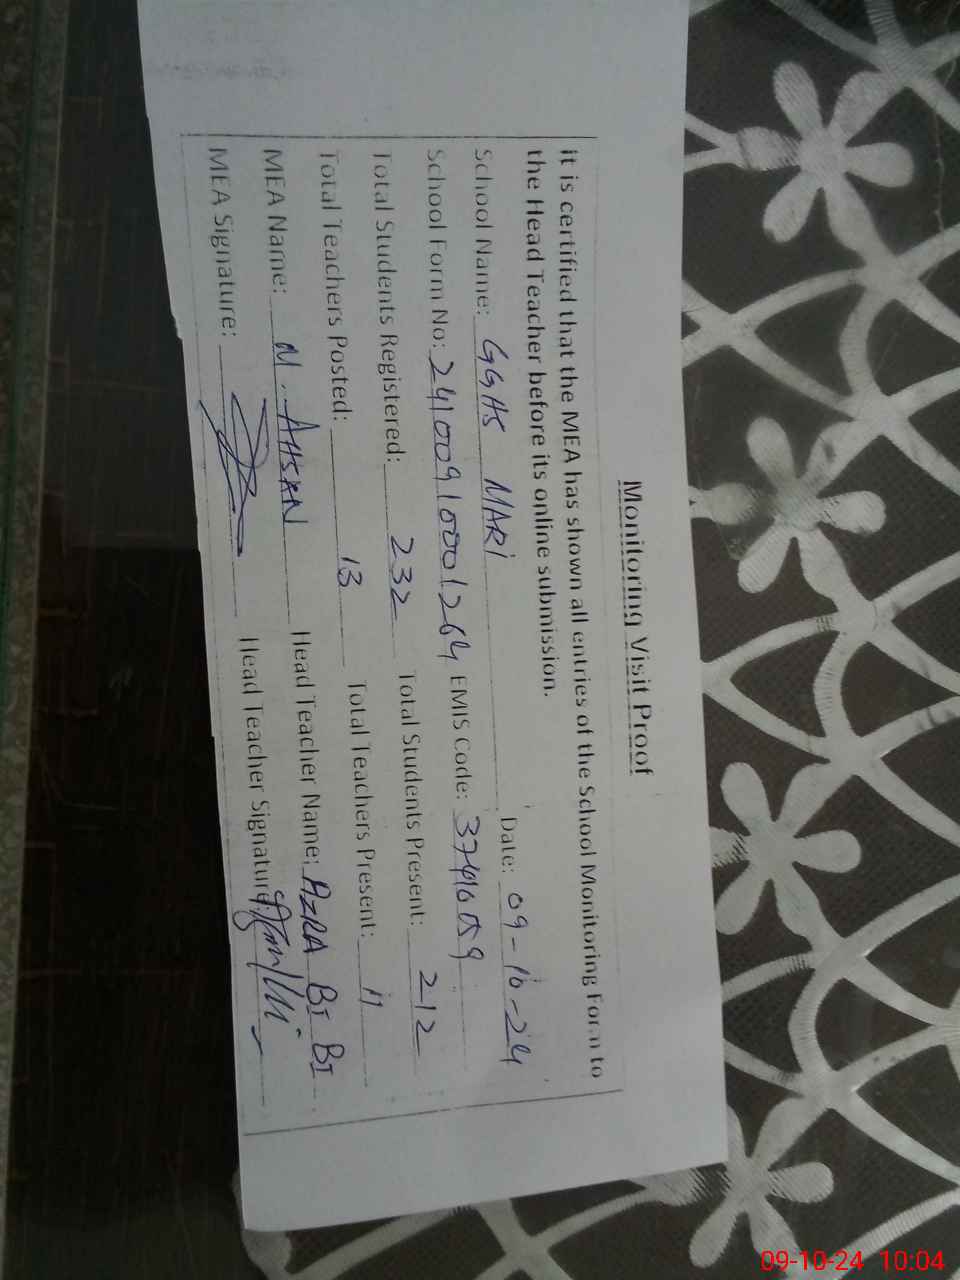 Monitoring Visit Proof
it is certified that the MEA has shown all entries of the School Monitoring Form to
the Head Teacher before its online submission.
School Name: GGHS MARI Date: 09-10-24
School Form No: 24100910001264 EMIS Code: 37410059
Total Students Registered: 232 Total Students Present: 212
Total Teachers Posted: 13 Total Teachers Present: 11
MEA Name: M. AHSAN Head Teacher Name: AZRA BI BI
MEA Signature: Head Teacher Signature:
09-10-24 10:04